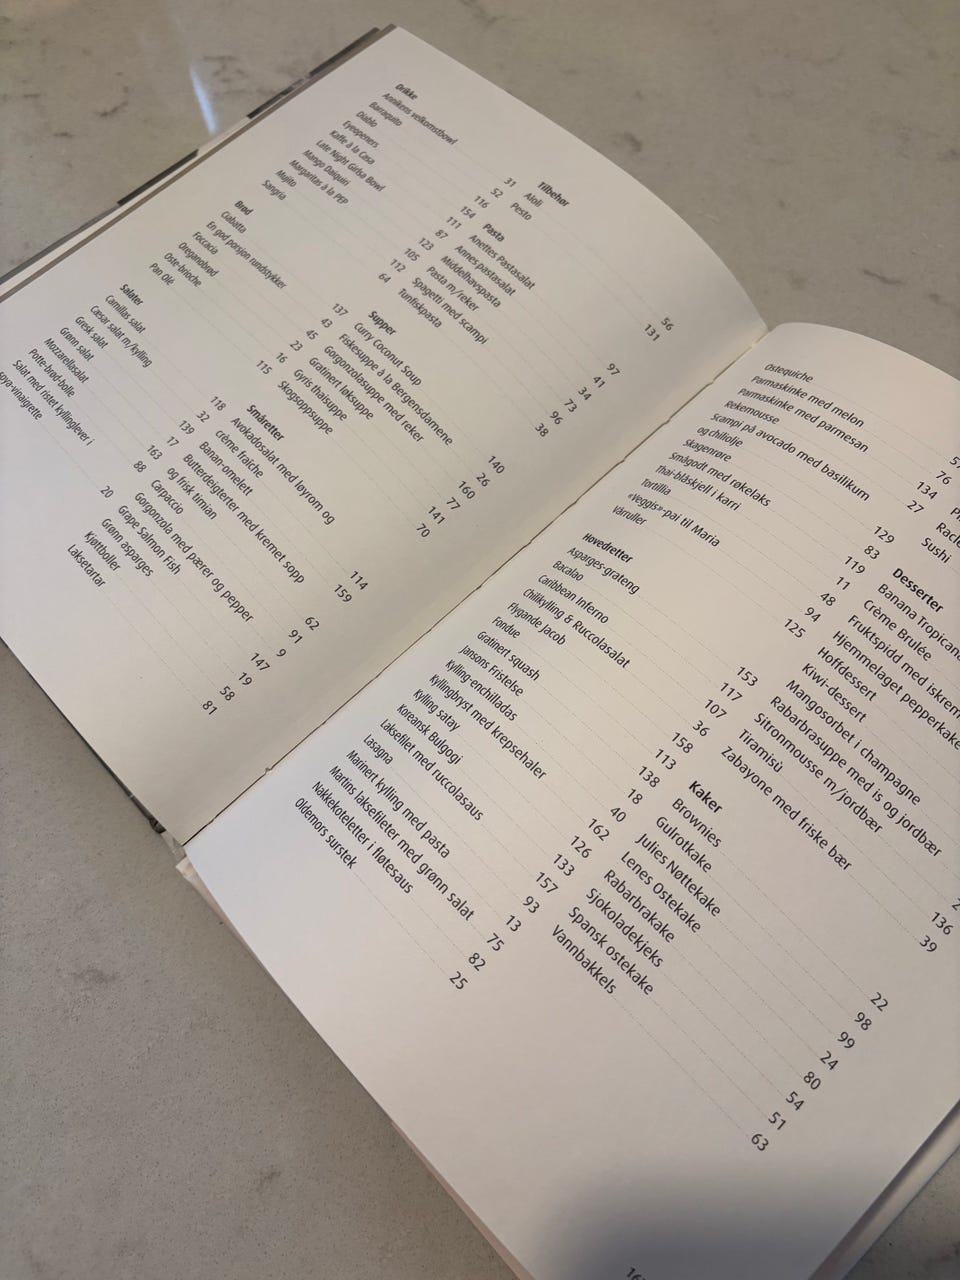 Drikke
Annikens velkomstbowl 31
Barraquito 52
Diablo 116
Eyeopeners 154
Kaffe à la Casa 111
Late Night Girlsa Bowl 87
Mango Daiquiri 123
Margaritas à la PEP 105
Mujito 112
Sangria 64
Brød
Ciabatta 137
En god porsjon rundstykker 43
Foccacia 45
Oreganobrød 23
Oste-brioche 16
Pan Olé 115
Salater
Camillas salat 118
Cæsar salat m/kylling 32
Gresk salat 139
Grønn salat 17
Mozzarellasalat 163
Potte-brød-bolle 88
Salat med ristet kyllinglever i
oya-vinaigrette 20
Tilbehør
Aioli 56
Pesto 131
Pasta
Anettes Pastasalat 97
Annes pastasalat 41
Middelhavspasta 34
Pasta m/reker 73
Spagetti med scampi 96
Tunfiskpasta 38
Supper
Curry Coconut Soup 140
Fiskesuppe à la Bergensdamene 26
Gorgonzolasuppe med reker 160
Gratinert løksuppe 77
Gyris thaisuppe 141
Skogsoppsuppe 70
Småretter
Avokadosalat med løyrom og
crème fraiche 114
Banan-omelett 159
Butterdeigterter med kremet sopp
og frisk timian 62
Carpaccio 91
Gorgonzola med pærer og pepper 9
Grape Salmon Fish 147
Grønn asparges 19
Kjøttboller 58
Laksetartar 81
Ostequiche
Parmaskinke med melon 76
Parmaskinke med parmesan 134
Rekemousse 27
Scampi på avocado med basilikum
og chiliolje 129
Skagenrøre 83
Smågodt med røkelaks 119
Thai-blåskjell i karri 11
Tortillia 48
«Veggis»-pai til Maria 94
Vårruller 125
Hovedretter
Asparges-grateng 153
Bacalao 117
Caribbean Inferno 107
Chilikylling & Ruccolasalat 36
Flygande Jacob 158
Fondue 113
Gratinert squash 138
Jansons Fristelse 18
Kylling-enchilladas 40
Kyllingbryst med krepsehaler 162
Kylling satay 126
Koreansk Bulgogi 133
Laksefilet med ruccolasaus 157
Lasagna 93
Marinert kylling med pasta 13
Martins laksefileter med grønn salat 75
Nakkekoteletter i fløtesaus 82
Oldemors surstek 25
Sushi
Desserter
Banana Tropicana
Crème Brulée
Fruktspidd med iskrem
Hjemmelaget pepperkake
Hoffdessert
Kiwi-dessert
Mangosorbet i champagne
Rabarbrasuppe med is og jordbær
Sitronmousse m/jordbær
Tiramisù 136
Zabayone med friske bær 39
Kaker
Brownies 22
Gulrotkake 98
Julies Nøttekake 99
Lenes Ostekake 24
Rabarbrakake 80
Sjokoladekjeks 54
Spansk ostekake 51
Vannbakkels 63